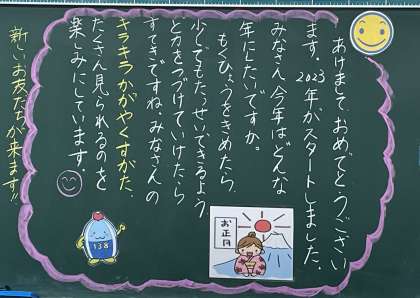 あけまして、おめでとうござい
ます。2023年がスタートしました。
みなさん、今年はどんな
年にしたいですか。
もくひょうをきめたら、
少しでもたっせいできるよう
どりょくをつづけていけたら
すてきですね。みなさんの
キラキラかがやくすがた、
たくさん見られるのを
楽しみにしています。
新しいお友だちが来ます!!
お正月
138